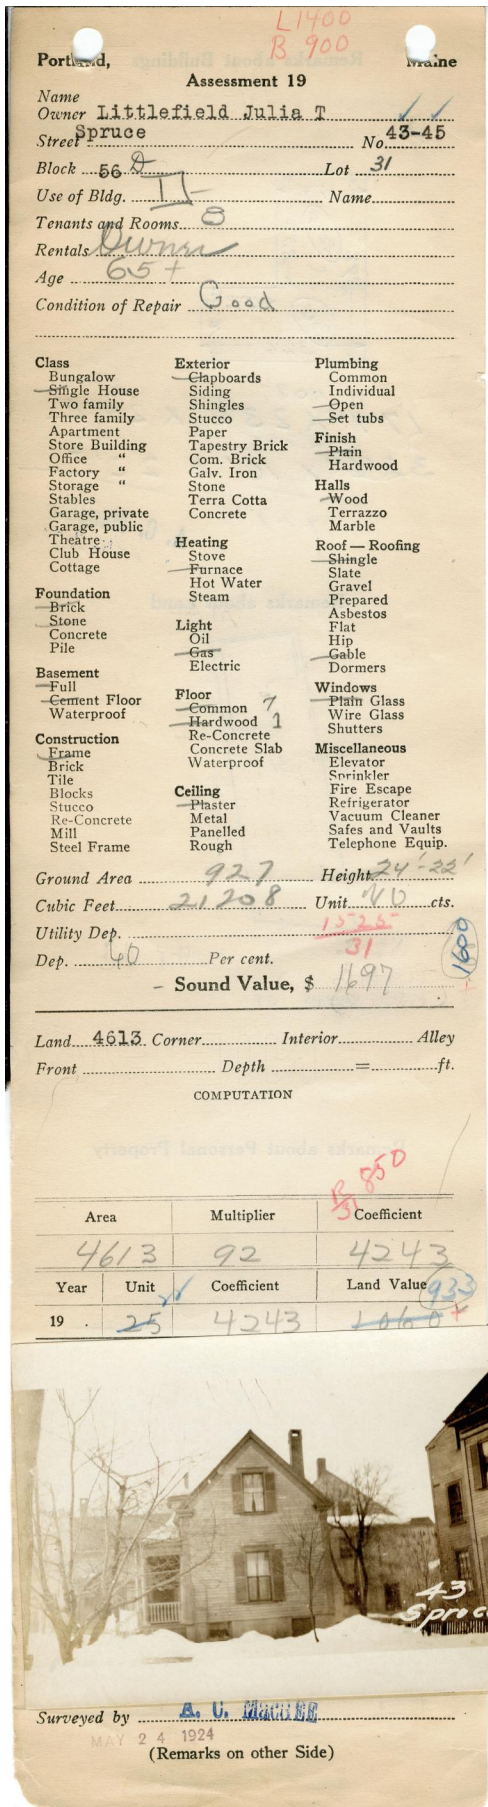 L1400
B 900
Portland, Maine
Assessment 19
Name
Owner Littlefield Julia T
Street Spruce No. 43-45
Block 56 D Lot 31
Use of Bldg. Name
Tenants and Rooms 8
Rentals Owner
Age 65+
Condition of Repair Good
Class
Bungalow
Single House
Two family
Three family
Apartment
Store Building
Office "
Factory "
Storage "
Stables
Garage, private
Garage, public
Theatre
Club House
Cottage
Foundation
Brick
Stone
Concrete
Pile
Basement
Full
Cement Floor
Waterproof
Construction
Frame
Brick
Tile
Blocks
Stucco
Re-Concrete
Mill
Steel Frame
Exterior
Clapboards
Siding
Shingles
Stucco
Paper
Tapestry Brick
Com. Brick
Galv. Iron
Stone
Terra Cotta
Concrete
Heating
Stove
Furnace
Hot Water
Steam
Light
Oil
Gas
Electric
Floor
Common 7
Hardwood 1
Re-Concrete
Concrete Slab
Waterproof
Ceiling
Plaster
Metal
Panelled
Rough
Plumbing
Common
Individual
Open
Set tubs
Finish
Plain
Hardwood
Halls
Wood
Terrazzo
Marble
Roof — Roofing
Shingle
Slate
Gravel
Prepared
Asbestos
Flat
Hip
Gable
Dormers
Windows
Plain Glass
Wire Glass
Shutters
Miscellaneous
Elevator
Sprinkler
Fire Escape
Refrigerator
Vacuum Cleaner
Safes and Vaults
Telephone Equip.
Ground Area 927 Height 24'-22'
Cubic Feet 21208 Unit cts.
Utility Dep. 1525
31
1600
Dep. 40 Per cent.
Sound Value, $ 1697
Land 4613 Corner Interior Alley
Front Depth = ft.
COMPUTATION
B 850
31
Area Multiplier Coefficient
4613 92 4243
Year Unit Coefficient Land Value 933
19 . 25 4243 1060 +
43
Spruce
Surveyed by A. C. MacGEE
MAY 24 1924
(Remarks on other Side)